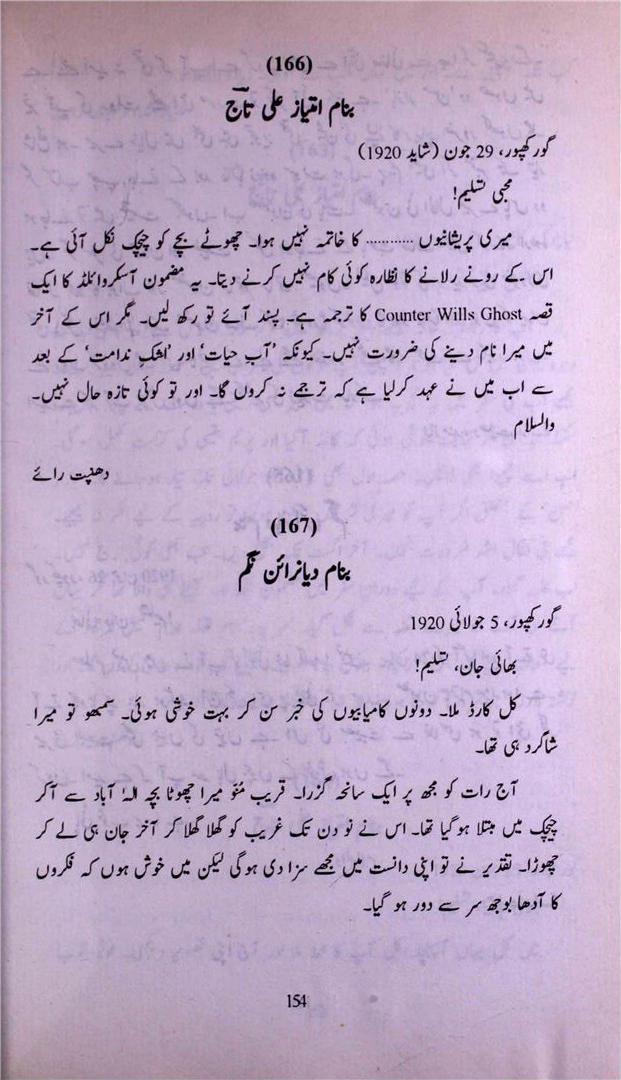 (166)
بنام امتیاز علی تاج
گورکھپور، 29 جون (شاید 1920)
محبی تسلیم!
میری پریشانیوں ........... کا خاتمہ نہیں ہوا۔ چھوٹے بچے کو چیچک نکل آئی ہے۔
اس کے رونے رلانے کا نظارہ کوئی کام نہیں کرنے دیتا۔ یہ مضمون آسکروائلڈ کا ایک
قصہ Counter Wills Ghost کا ترجمہ ہے۔ پسند آئے تو رکھ لیں۔ مگر اس کے آخر
میں میرا نام دینے کی ضرورت نہیں۔ کیونکہ ’آب حیات‘ اور ’اشکِ ندامت‘ کے بعد
سے اب میں نے عہد کرلیا ہے کہ ترجمے نہ کروں گا۔ اور تو کوئی تازہ حال نہیں۔
والسلام
دھنپت رائے
(167)
بنام دیانرائن نگم
گورکھپور، 5 جولائی 1920
بھائی جان، تسلیم!
کل کارڈ ملا۔ دونوں کامیابیوں کی خبر سن کر بہت خوشی ہوئی۔ سمجھو تو میرا
شاگرد ہی تھا۔
آج رات کو مجھ پر ایک سانحہ گزرا۔ قریب منّو میرا چھوٹا بچہ الہٰ آباد سے آکر
چیچک میں مبتلا ہوگیا تھا۔ اس نے نو دن تک غریب کو گھلا گھلا کر آخر جان ہی لے کر
چھوڑا۔ تقدیر نے تو اپنی دانست میں مجھے سزا دی ہوگی لیکن میں خوش ہوں کہ فکروں
کا آدھا بوجھ سر سے دور ہو گیا۔
154